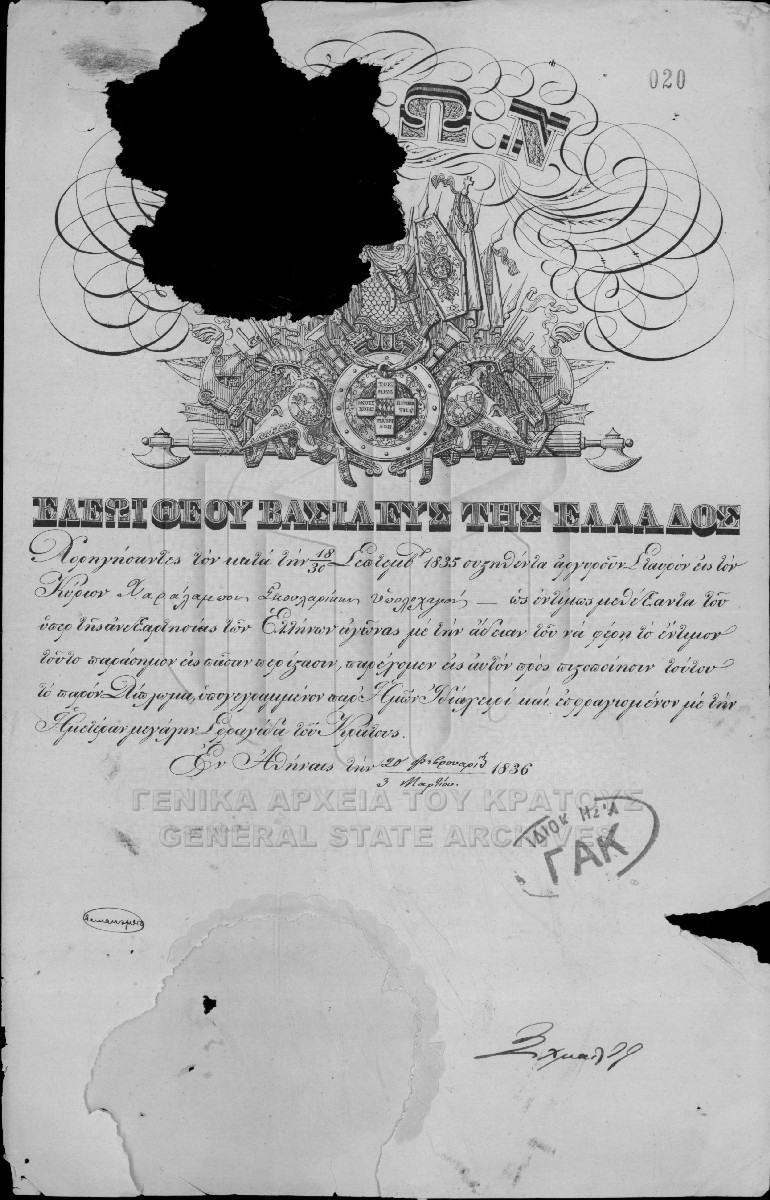 020
Ω Ν
ΕΛΕΩΙ ΘΕΟΥ ΒΑΣΙΛΕΥΣ ΤΗΣ ΕΛΛΑΔΟΣ
Χορηγήσαντες τὸν κατὰ τὴν 18/30 Σεπτεμβ 1835 συστηθέντα ἀργυροῦν Σταυρὸν εἰς τὸν
Κύριον Χαράλαμπον Ὑπολοχαγόν — ὡς ἐντίμως μεθέξαντα τοῦ
ὑπὲρ τῆς ἀνεξαρτησίας τῶν Ἑλλήνων ἀγῶνος μὲ τὴν ἄδειαν τοῦ νὰ φέρῃ τὸ ἔντιμον
τοῦτο παράσημον εἰς πᾶσαν περίστασιν, παρέχομεν εἰς αὐτὸν πρὸς πιστοποίησιν τούτου
τὸ παρὸν Δίπλωμα, ὑπογεγραμμένον παρ' Ἡμῶν Ἰδιοχείρως καὶ ἐσφραγισμένον μὲ τὴν
Ἡμετέραν μεγάλην Σφραγῖδα τοῦ Κράτους.
Ἐν Ἀθήναις τὴν 20 Φεβρουαρίȣ / 3 Μαρτίου. 1836
ΓΕΝΙΚΑ ΑΡΧΕΙΑ ΤΟΥ ΚΡΑΤΟΥΣ
GENERAL STATE ARCHIVES
ΓΑΚ